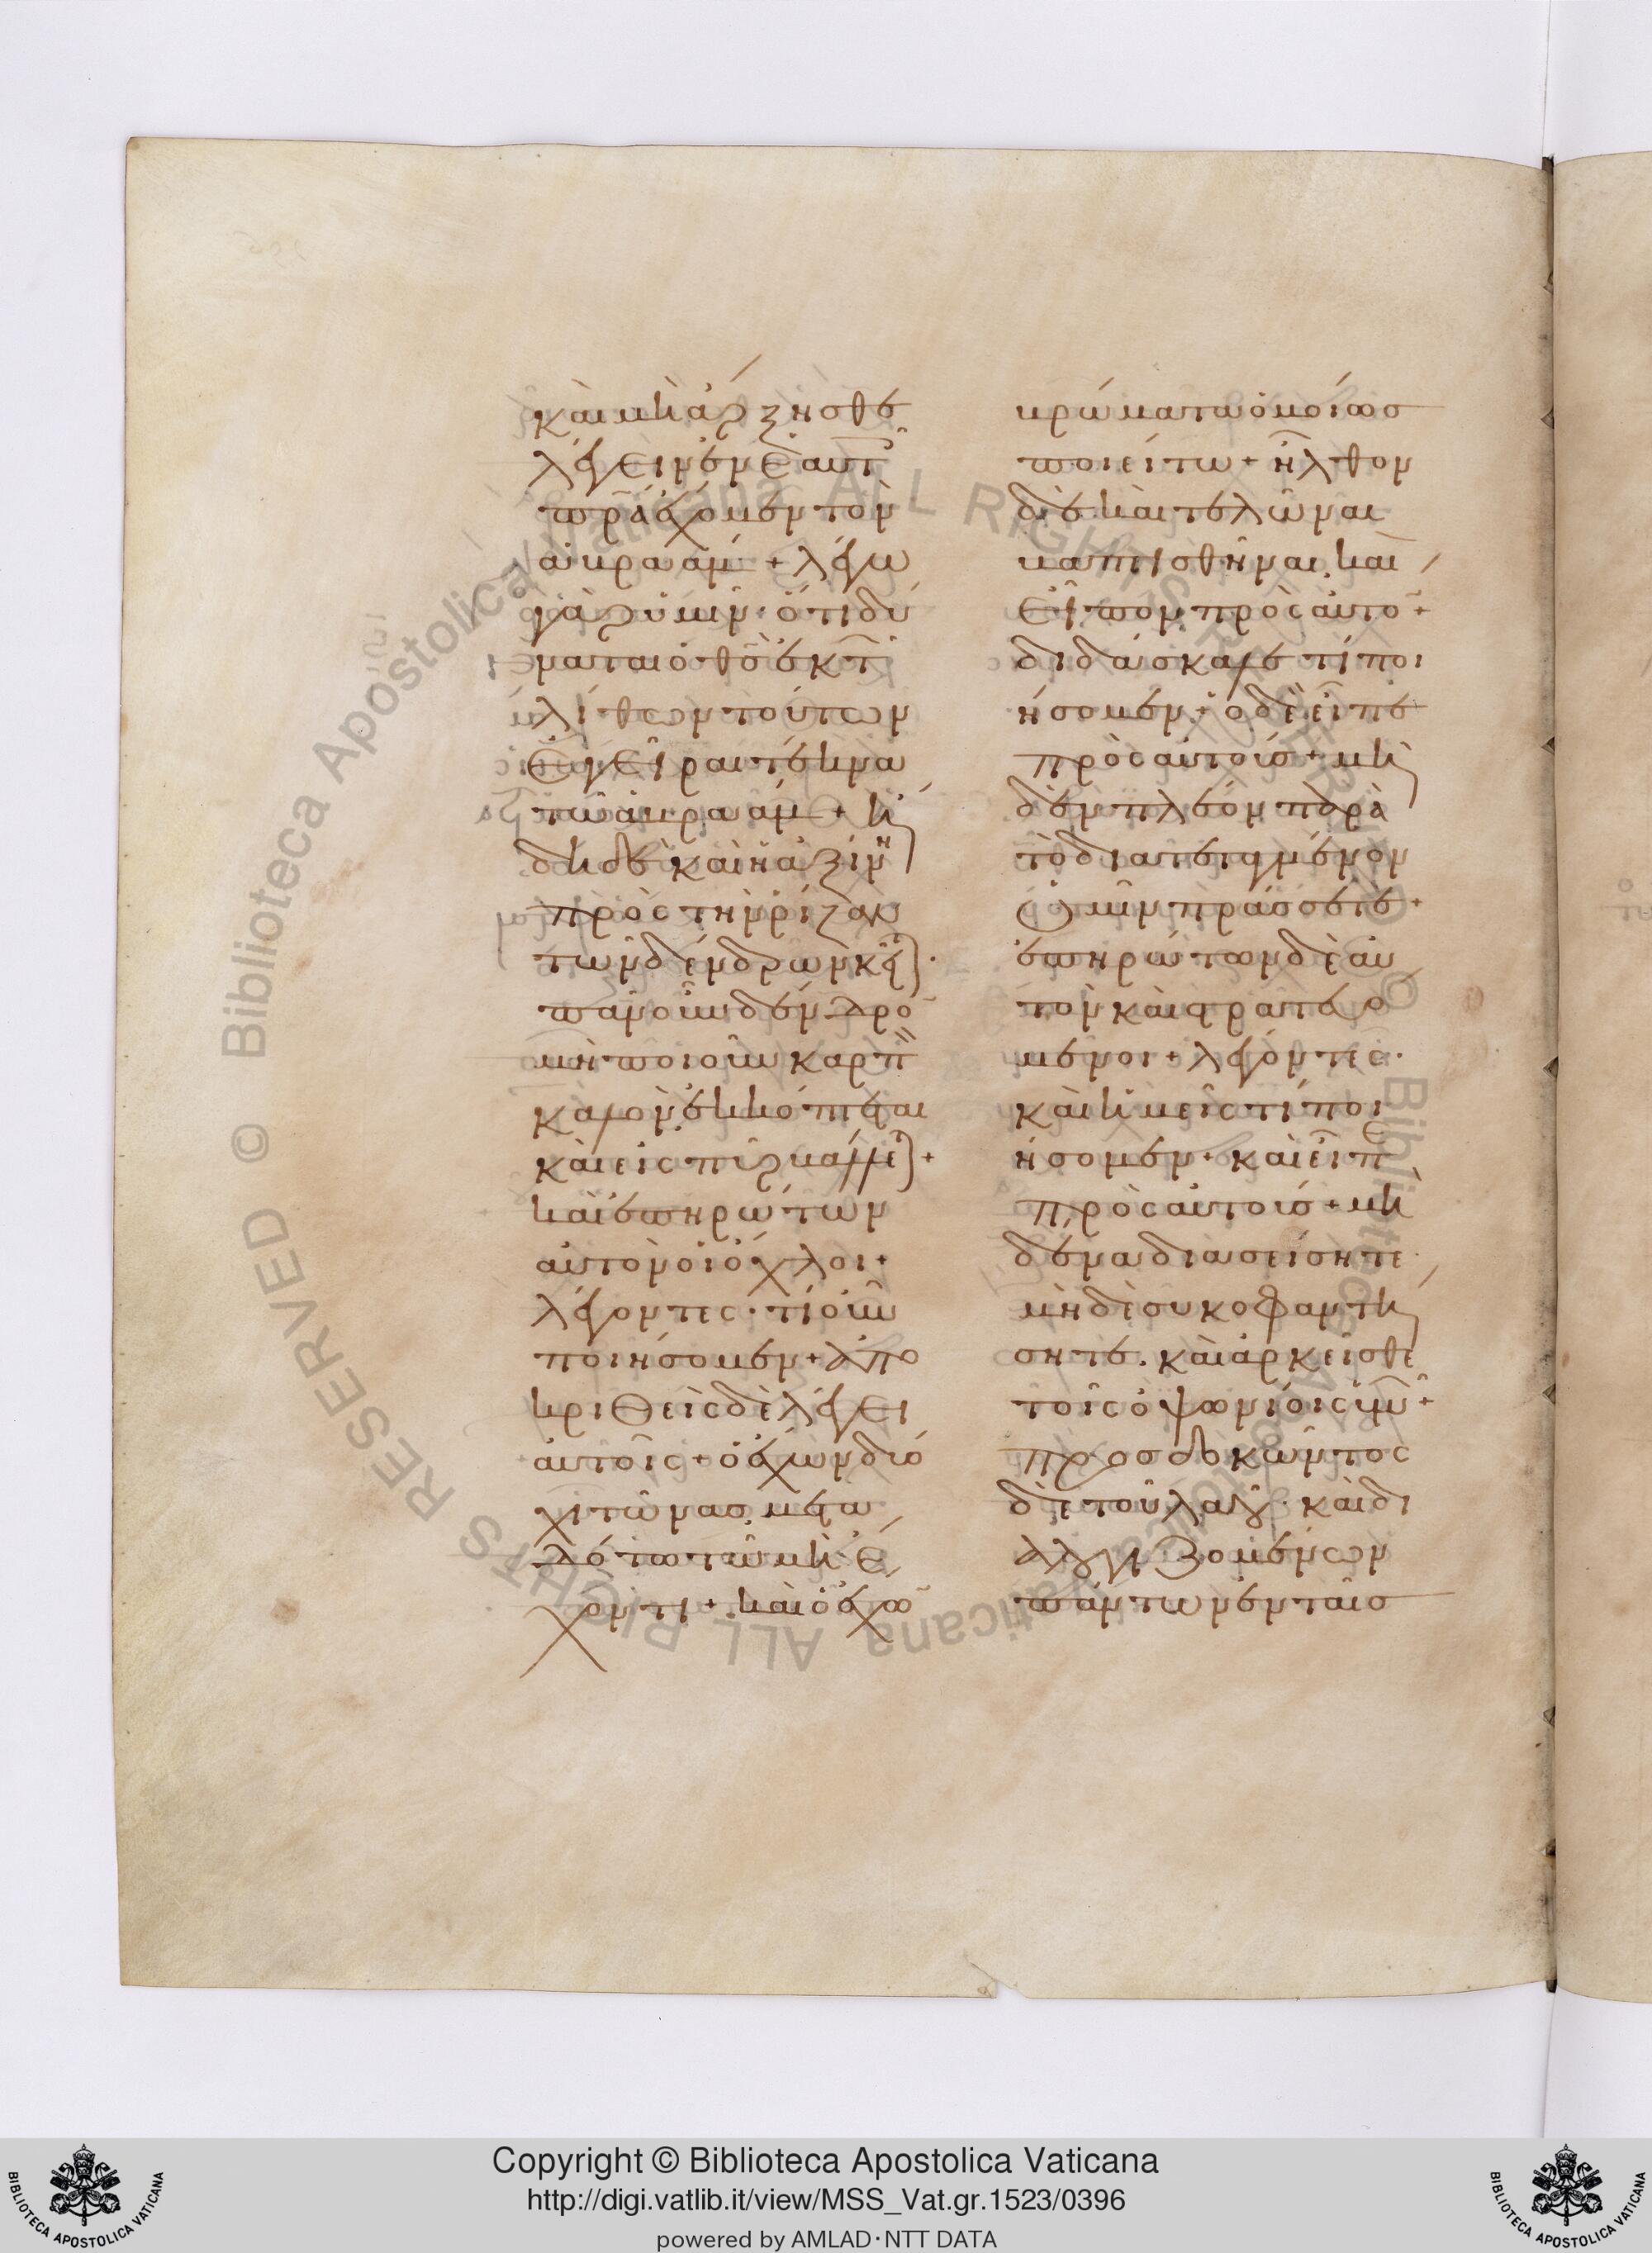 καὶ μὴ ἄρξησθε
λέγειν ἐν ἑαυτ
πρα ἔχομεν τὸν
ἀβραάμ + λέγω
γὰρ ὑμῖν· ὅτι δύ
ναται ὁ θσ ἐκ τ
λίθων τούτων
ἐγεῖραι τέκνα
τῶ ἀβραάμ + ἤ
δη δὲ καὶ ἡ ἀξίνη
πρὸς τὴν ρίζαν
τῶν δένδρων κεῖται·
πᾶν οὖν δένδρο
μὴ ποιοῦν καρπ
καλὸν ἐκκόπτεται
καὶ εἰς πῦρ βάλλεται +
καὶ ἐπηρώτων
αὐτὸν οἱ ὄχλοι +
λέγοντες· τί οὖν
ποιήσομεν + ἀπο
κριθεὶς δὲ λέγει
αὐτοῖς + ὁ ἔχων δύο
χιτῶνας μετα
δότω τῶ μὴ ἔ
χοντι + καὶ ὁ ἔχω
βρώματα ὁμοίως
ποιείτω + ἦλθον
δὲ καὶ τελῶναι
βαπτισθῆναι καὶ
εἶπον πρὸς αὐτο +
διδάσκαλε τί ποι
ήσομεν + ὁ δὲ εἶπε
πρὸς αὐτούς + μη
δὲν πλέον παρὰ
τὸ διατεταγμένον
ὑμῖν πράσσετε +
ἐπηρώτων δὲ αὐ
τὸν καὶ στρατευό
μενοι + λέγοντες·
καὶ ἡμεῖς τί ποι
ήσομεν + καὶ εἶπε
πρὸς αὐτούς + μη
δένα διασείσητε·
μηδὲ συκοφαντή
σητε· καὶ ἀρκεῖσθε
τοῖς ὀψωνίοις ὑμ +
προσδοκῶντος
δὲ τοῦ λαοῦ· καὶ δι
αλογιζομένων
πάντων ἐν ταῖς
Copyright © Biblioteca Apostolica Vaticana
http://digi.vatlib.it/view/MSS_Vat.gr.1523/0396
powered by AMLAD·NTT DATA
BIBLIOTECA APOSTOLICA VATICANA
BIBLIOTECA APOSTOLICA VATICANA
© Biblioteca Apostolica Vaticana ALL RIGHTS RESERVED
© Biblioteca Apostolica Vaticana ALL RIGHTS RESERVED